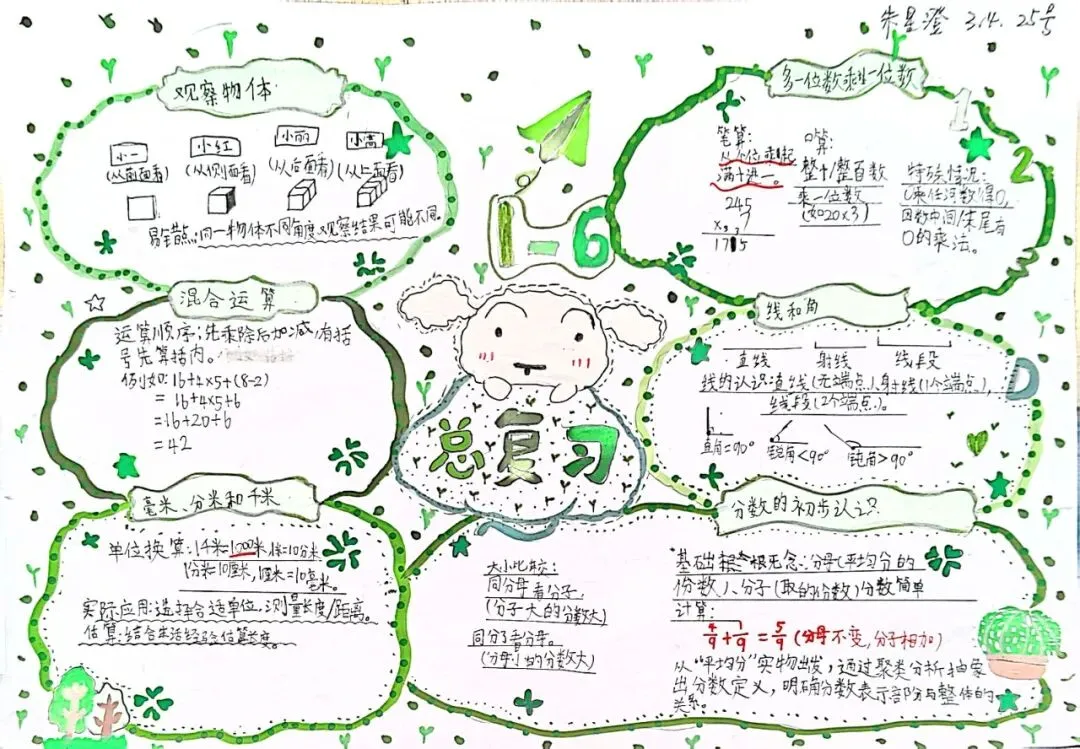 朱星澄 3.14. 25号
观察物体
小一 小红 小丽 小高
(从前面看) (从侧面看) (从后面看) (从上面看)
易错点:同一物体不同角度观察结果可能不同。
多一位数乘一位数
笔算:
从个位乘起
满十进一。
245
× 7
1715
口算:
整十/整百数
乘一位数
(如20×3)
特殊情况:
0乘任何数得0,
因数中间/末尾有
0的乘法。
1
2
3
1-6
总复习
混合运算
运算顺序:先乘除后加减,有括
号先算括内。
例如:16+4×5+(8-2)
=16+4×5+6
=16+20+6
=42
线和角
直线 射线 线段
线的认识:直线(无端点)、射线(1个端点),
线段(2个端点)。
直角=90° 锐角<90° 钝角>90°
毫米、分米和千米
单位换算:1千米=1000米,1米=10分米
1分米=10厘米,1厘米=10毫米。
实际应用:选择合适单位,测量长度/距离。
估算:结合生活经验估算长度。
分数的初步认识
大小比较:
同分母看分子,
(分子大的分数大)
同分子看分母。
(分母小的分数大)
基础概念:分母(平均分的
份数)、分子(取的份数)分数简单
计算:
4/9+1/9=5/9(分母不变,分子相加)
从"平均分"实物出发,通过聚类分析抽象
出分数定义,明确分数表示部分与整体的
关系。